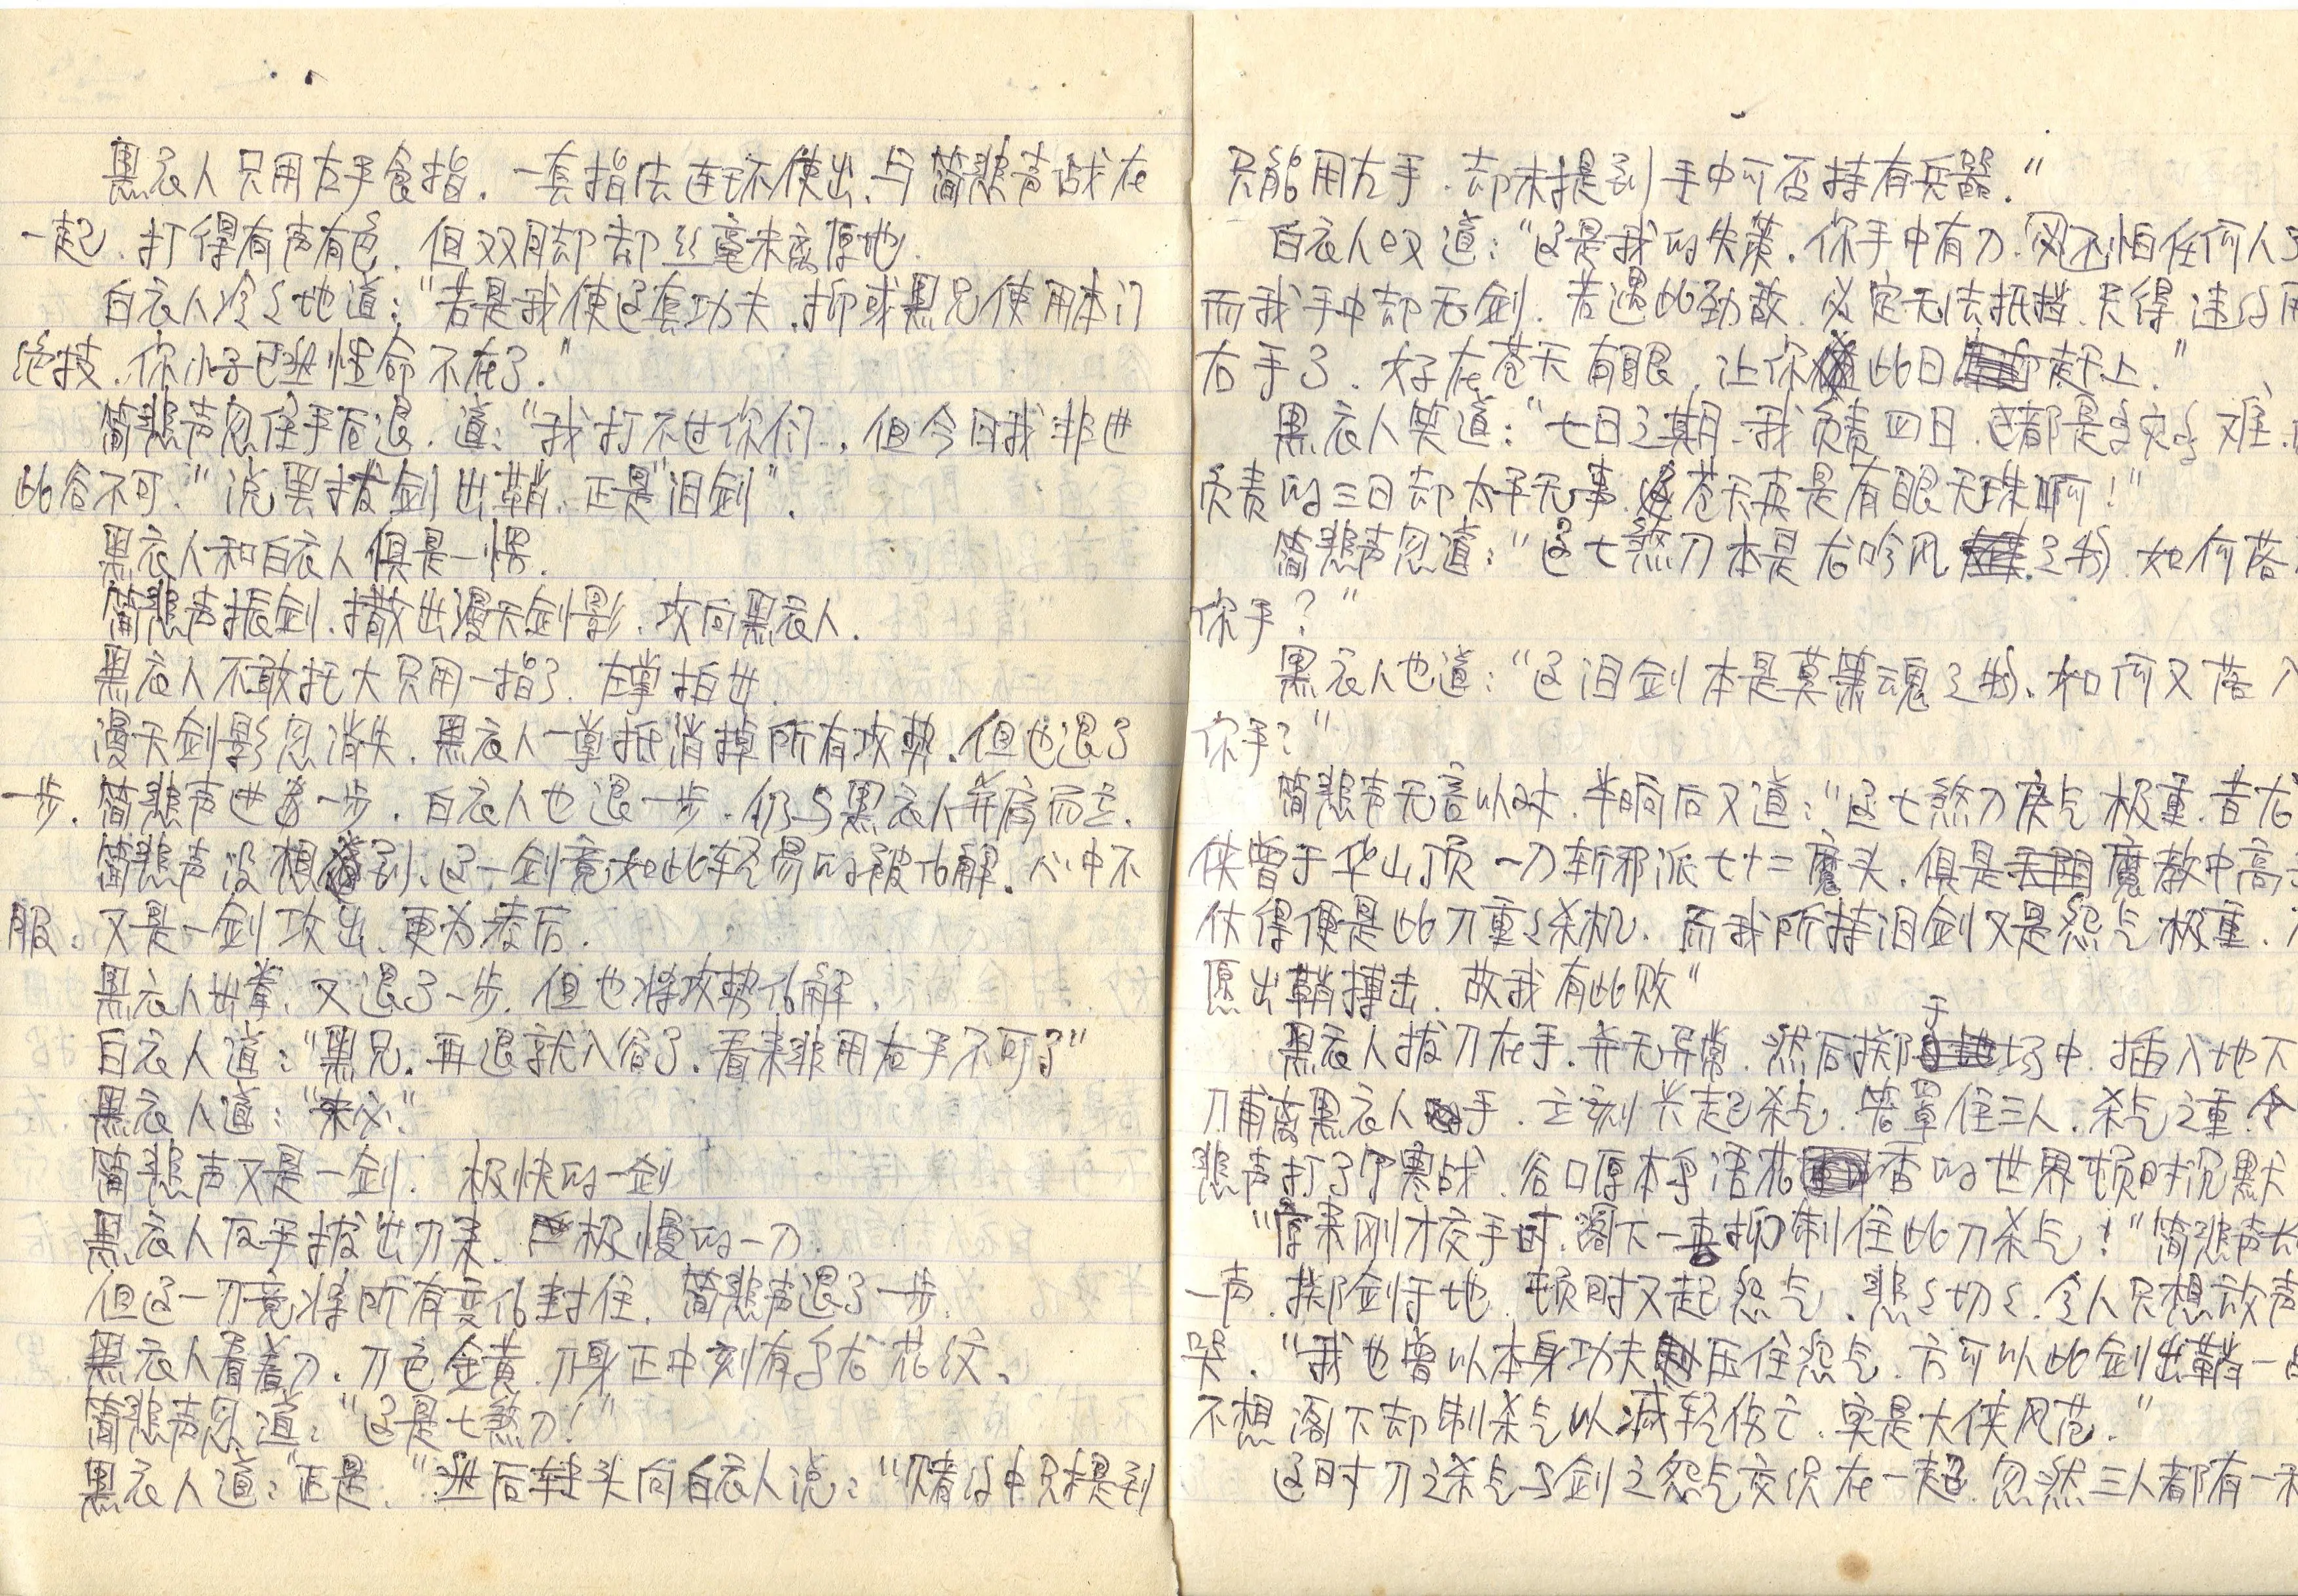 黑衣人只用左手食指，一套指法连环使出，与简悲声战在
一起，打得有声有色，但双脚却丝毫未离原地。
白衣人冷々地道：“若是我使这套功夫，抑或黑兄使用本门
绝技，你小子已然性命不在了。”
简悲声忽住手后退，道：“我打不过你们，但今日我非进
此谷不可。”说罢拔剑出鞘，正是“泪剑”。
黑衣人和白衣人俱是一愣。
简悲声振剑，撒出漫天剑影，攻向黑衣人。
黑衣人不敢托大只用一指了，左掌拍出。
漫天剑影忽消失，黑衣人一掌抵消掉所有攻势，但也退了
一步。简悲声进着一步，白衣人也退一步，仍与黑衣人并肩而立。
简悲声没想到，这一剑竟如此轻易的被化解，心中不
服，又是一剑攻出，更为凄厉。
黑衣人出掌，又退了一步，但也将攻势化解。
白衣人道：“黑兄，再退就入谷了，看来非用右手不可了”
黑衣人道：“未必。”
简悲声又是一剑，极快的一剑
黑衣人反手拔出刀来，极慢的一刀。
但这一刀竟将所有变化封住，简悲声退了一步。
黑衣人看着刀，刀色金黄，刀身正中刻有古花纹。
简悲声忽道：“这是七煞刀！”
黑衣人道：“正是。”然后转头向白衣人说：“赌约中只提到
只能用左手，却未提到手中可否持有兵器。”
白衣人叹道：“这是我的失策，你手中有刀，还怕任何人
而我手中却无剑，若遇此劲敌，必定无法抵挡，只得违约用
右手了，好在苍天有眼，让你此日赶上。”
黑衣人笑道：“七日之期，我负责四日，这都是多灾多难，
负责的三日却太平无事，苍天真是有眼无珠啊！”
简悲声忽道：“这七煞刀本是古吟风之物，如何落
你手？”
黑衣人也道：“这泪剑本是莫萧魂之物，如何又落入
你手？”
简悲声无言以对，半晌后又道：“这七煞刀戾气极重，昔古
侠曾于华山顶一刀斩邪派七十二魔头，俱是魔教中高
仗得便是此刀重々杀机，而我所持泪剑又是怨气极重，
愿出鞘搏击，故我有此败”
黑衣人拔刀在手，并无异常，然后掷于场中，插入地下
刀甫离黑衣人手，立刻共起杀气，笼罩住三人，杀气之重，令
悲声打了个寒战，谷口原本鸟语花香的世界顿时沉默
“原来刚才交手时，阁下一直抑制住此刀杀气！”简悲声
一声，掷剑于地，顿时又起怨气，悲々切々，令人只想放声
哭。“我也曾以本身功夫压住怨气，方可以此剑出鞘一
不想阁下却制杀气以减轻伤亡，实是大侠风范。”
这时刀之杀气与剑之怨气交织在一起，忽然三人都有一